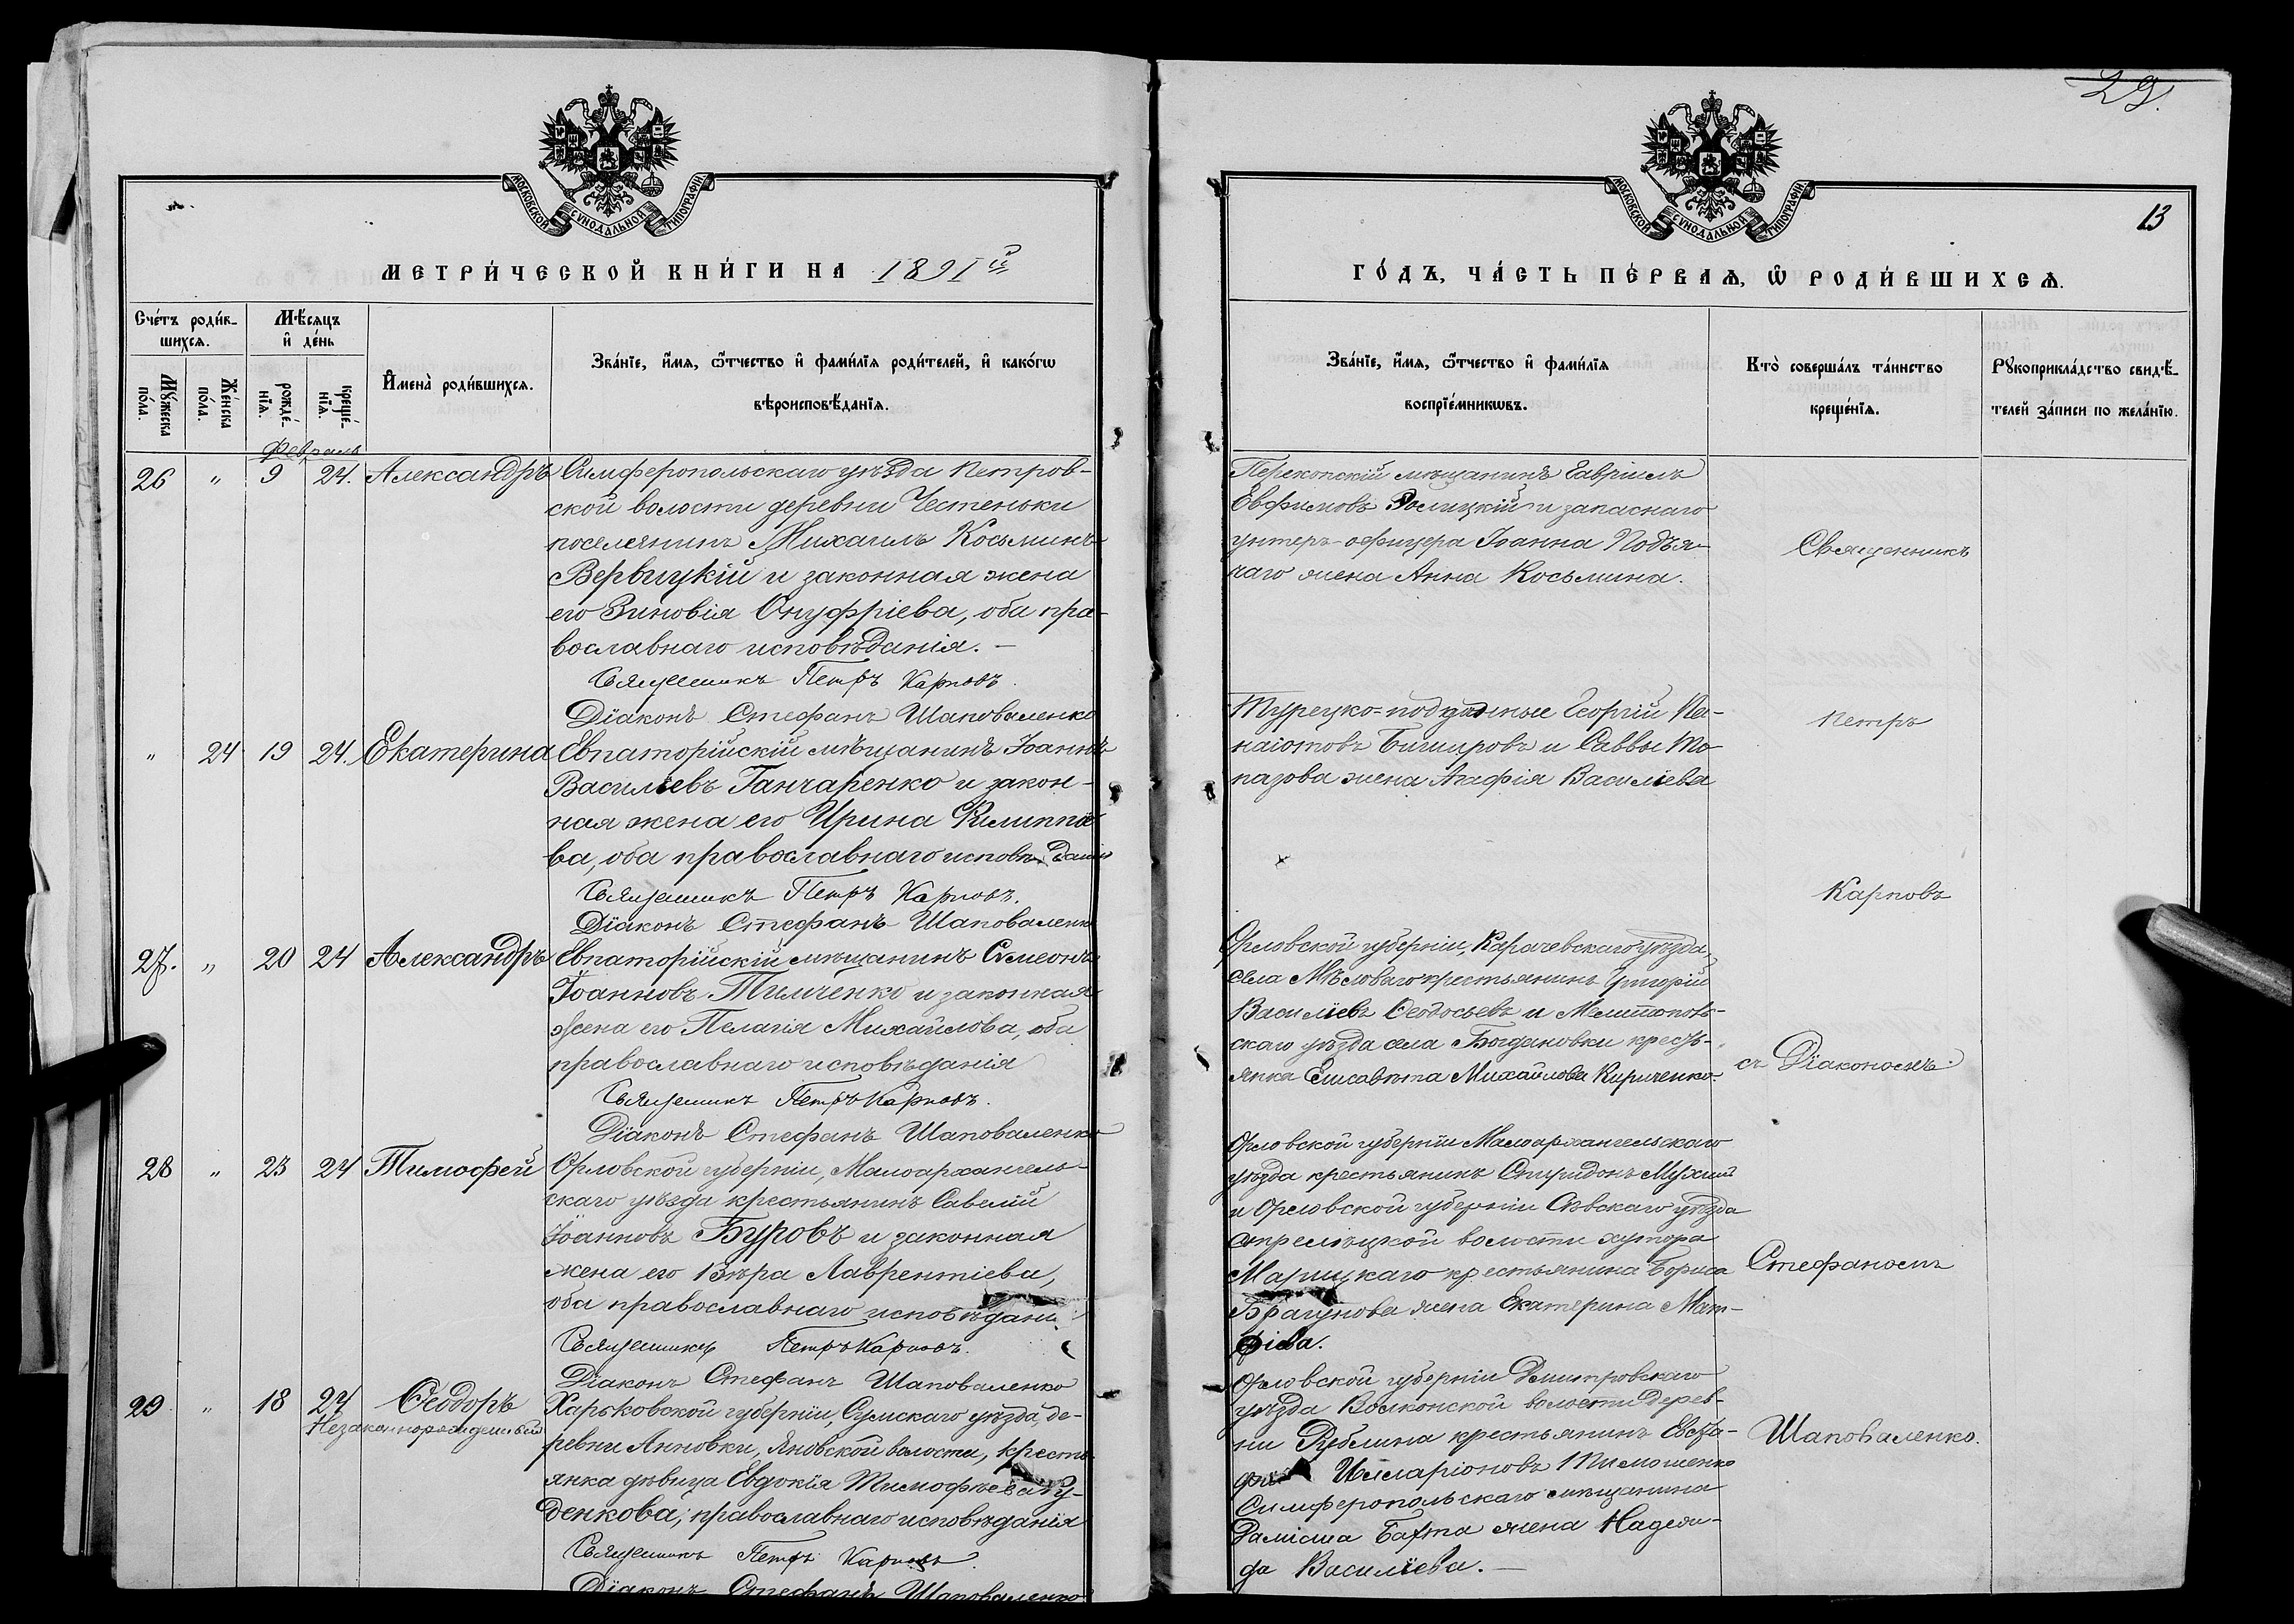 МОСКОВСКОЙ СѴНОДАЛЬНОЙ ТИПОГРАФІИ
МЕТРИ́ЧЕСКОЙ КНИ́ГИ НА 1891й
Сче́тъ роди́в-
шихсѧ.
Мѣ́сѧцъ
и҆ де́нь
Мꙋ́жеска по́ла.
Же́нска по́ла.
рожде́-
нїѧ.
креще́-
нїѧ.
И҆мена̀ роди́вшихсѧ.
Зва́нїе, и҆́мѧ, ѻ҆́тчество и҆ фами́лїѧ роди́телей, и҆ како́гѡ
вѣроисповѣ́данїѧ.
Февраль
26 " 9 24. Александръ Симферопольскаго уѣзда Петров-
ской волости деревни Честеньки
поселянинъ Михаилъ Косьминъ
Вервицкій и законная жена
его Зиновія Онуфріева, оба пра-
вославнаго исповѣданія. –
Священникъ Петръ Карповъ.
Діаконъ Стефанъ Шаповаленко
" 24 19 24. Екатерина Евпаторійскій мѣщанинъ Іоаннъ
Васильевъ Ганчаренко и закон-
ная жена его Ирина Филиппо-
ва, оба православнаго исповѣданія
Священникъ Петръ Карповъ.
Діаконъ Стефанъ Шаповаленко
27. " 20 24 Александръ Евпаторійскій мѣщанинъ Симеонъ
Іоанновъ Тимченко и законная
жена его Пелагія Михайлова, оба
православнаго исповѣданія
Священникъ Петръ Карповъ.
Діаконъ Стефанъ Шаповаленко
28 " 23 24 Тимофей Орловской губерніи, Малоархангель-
скаго уѣзда крестьянинъ Савелій
Іоанновъ Буровъ и законная
жена его Вѣра Лаврентіева,
оба православнаго исповѣдані
Священникъ Петръ Карповъ.
Діаконъ Стефанъ Шаповаленко
29 " 18 24 Ѳеодоръ Харьковской губерніи, Сумскаго уѣзда, де-
Незаконнорожденный
ревни Анновки, Яновской волости, кресть-
янка дѣвица Евдокія Тимофѣева Гу-
денкова, православнаго исповѣданія
Священникъ Петръ Карповъ.
Діаконъ Стефанъ Шаповаленко
29.
МОСКОВСКОЙ СѴНОДАЛЬНОЙ ТИПОГРАФІИ
13
ГО́ДЪ, ЧА́СТЬ ПЕ́РВАѦ, Ѿ РОДИ́ВШИХСѦ.
Зва́нїе, и҆́мѧ, ѻ҆́тчество и҆ фами́лїѧ
воспрїе́мникѡвъ.
Кто̀ соверша́лъ та́инство
креще́нїѧ.
Рꙋкоприкла́дство свидѣ́-
телей за́писи по жела́нїю.
Перекопскій мѣщанинъ Гавріилъ
Евфимовъ и запаснаго
унтеръ-офицера Іоанна Подъя-
чаго жена Анна Косьмина.
Священникъ
Турецко-подданные Георгій Па-
наіотовъ и Саввы То-
пазова жена Агафія Василіева
Петръ
Карповъ
Орловской губерніи, Карачевскаго уѣзда,
села Мѣловаго крестьянинъ Григорій
Василіевъ Ѳеодосьевъ и Мелитополь-
скаго уѣзда села Богдановки кресть-
янка Елисавета Михайлова Кириченко.
съ Діакономъ
Орловской губерніи Малоархангельскаго
уѣзда крестьянинъ Спиридонъ
и Орловской губерніи Сѣвскаго уѣзда
Стрелецкой волости хутора
Марицкаго крестьянина Бориса
Брагунова жена Екатерина Мат-
фіева.
Стефаномъ
Орловской губерніи Дмитровскаго
уѣзда Волконской волости дерев-
ни Рублина крестьянинъ Евста-
фій Илларіоновъ Тимошенко
Симферопольскаго мѣщанина
жена Надеж-
да Василіева. –
Шаповаленко.